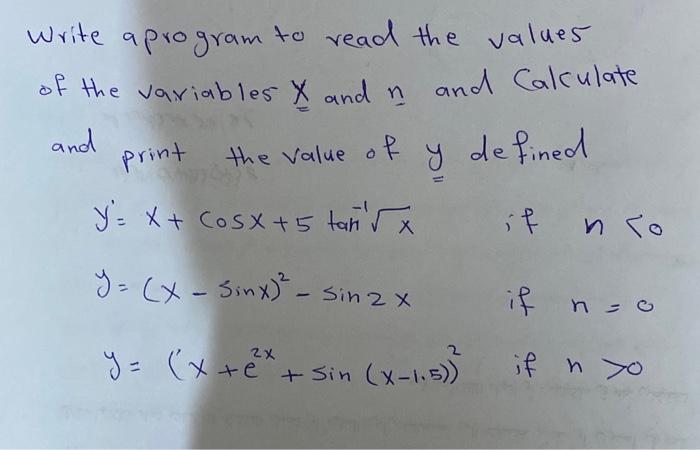 Write a program to read the values
of the variables X and n and Calculate
and print the value of y defined
y = x + cosx + 5 tan⁻¹√x if n < 0
y = (x - sinx)² - sin 2x if n = 0
y = (x + e²ˣ + sin (x-1.5))² if n > 0